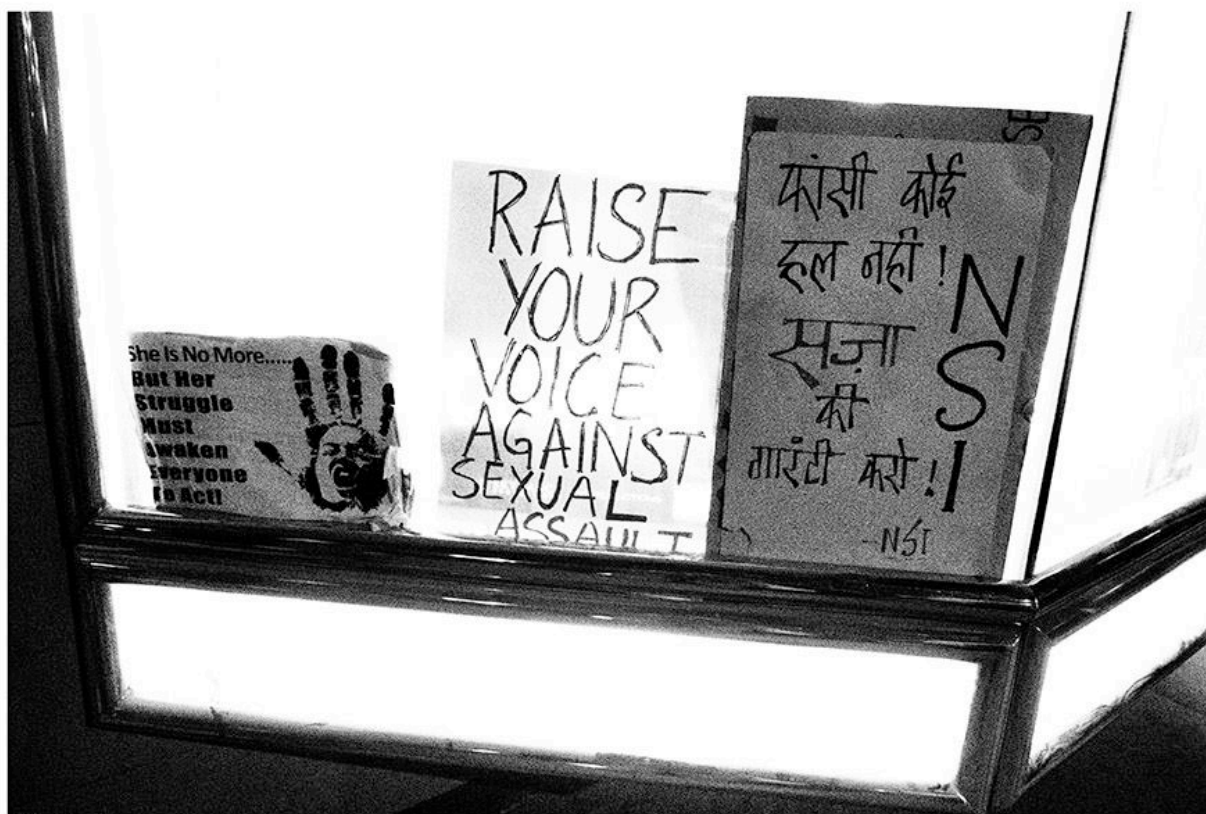 She Is No More.....
But Her
Struggle
Must
Awaken
Everyone
To Act!
RAISE
YOUR
VOICE
AGAINST
SEXUAL
ASSAULT
फांसी कोई
हल नही !
सज़ा
की
गारंटी करो !
-NSI
NSI
SE